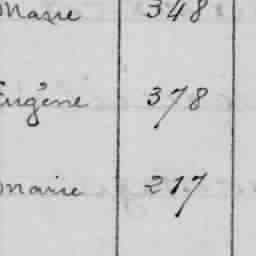 Marie 348
Eugène 378
Marie 217